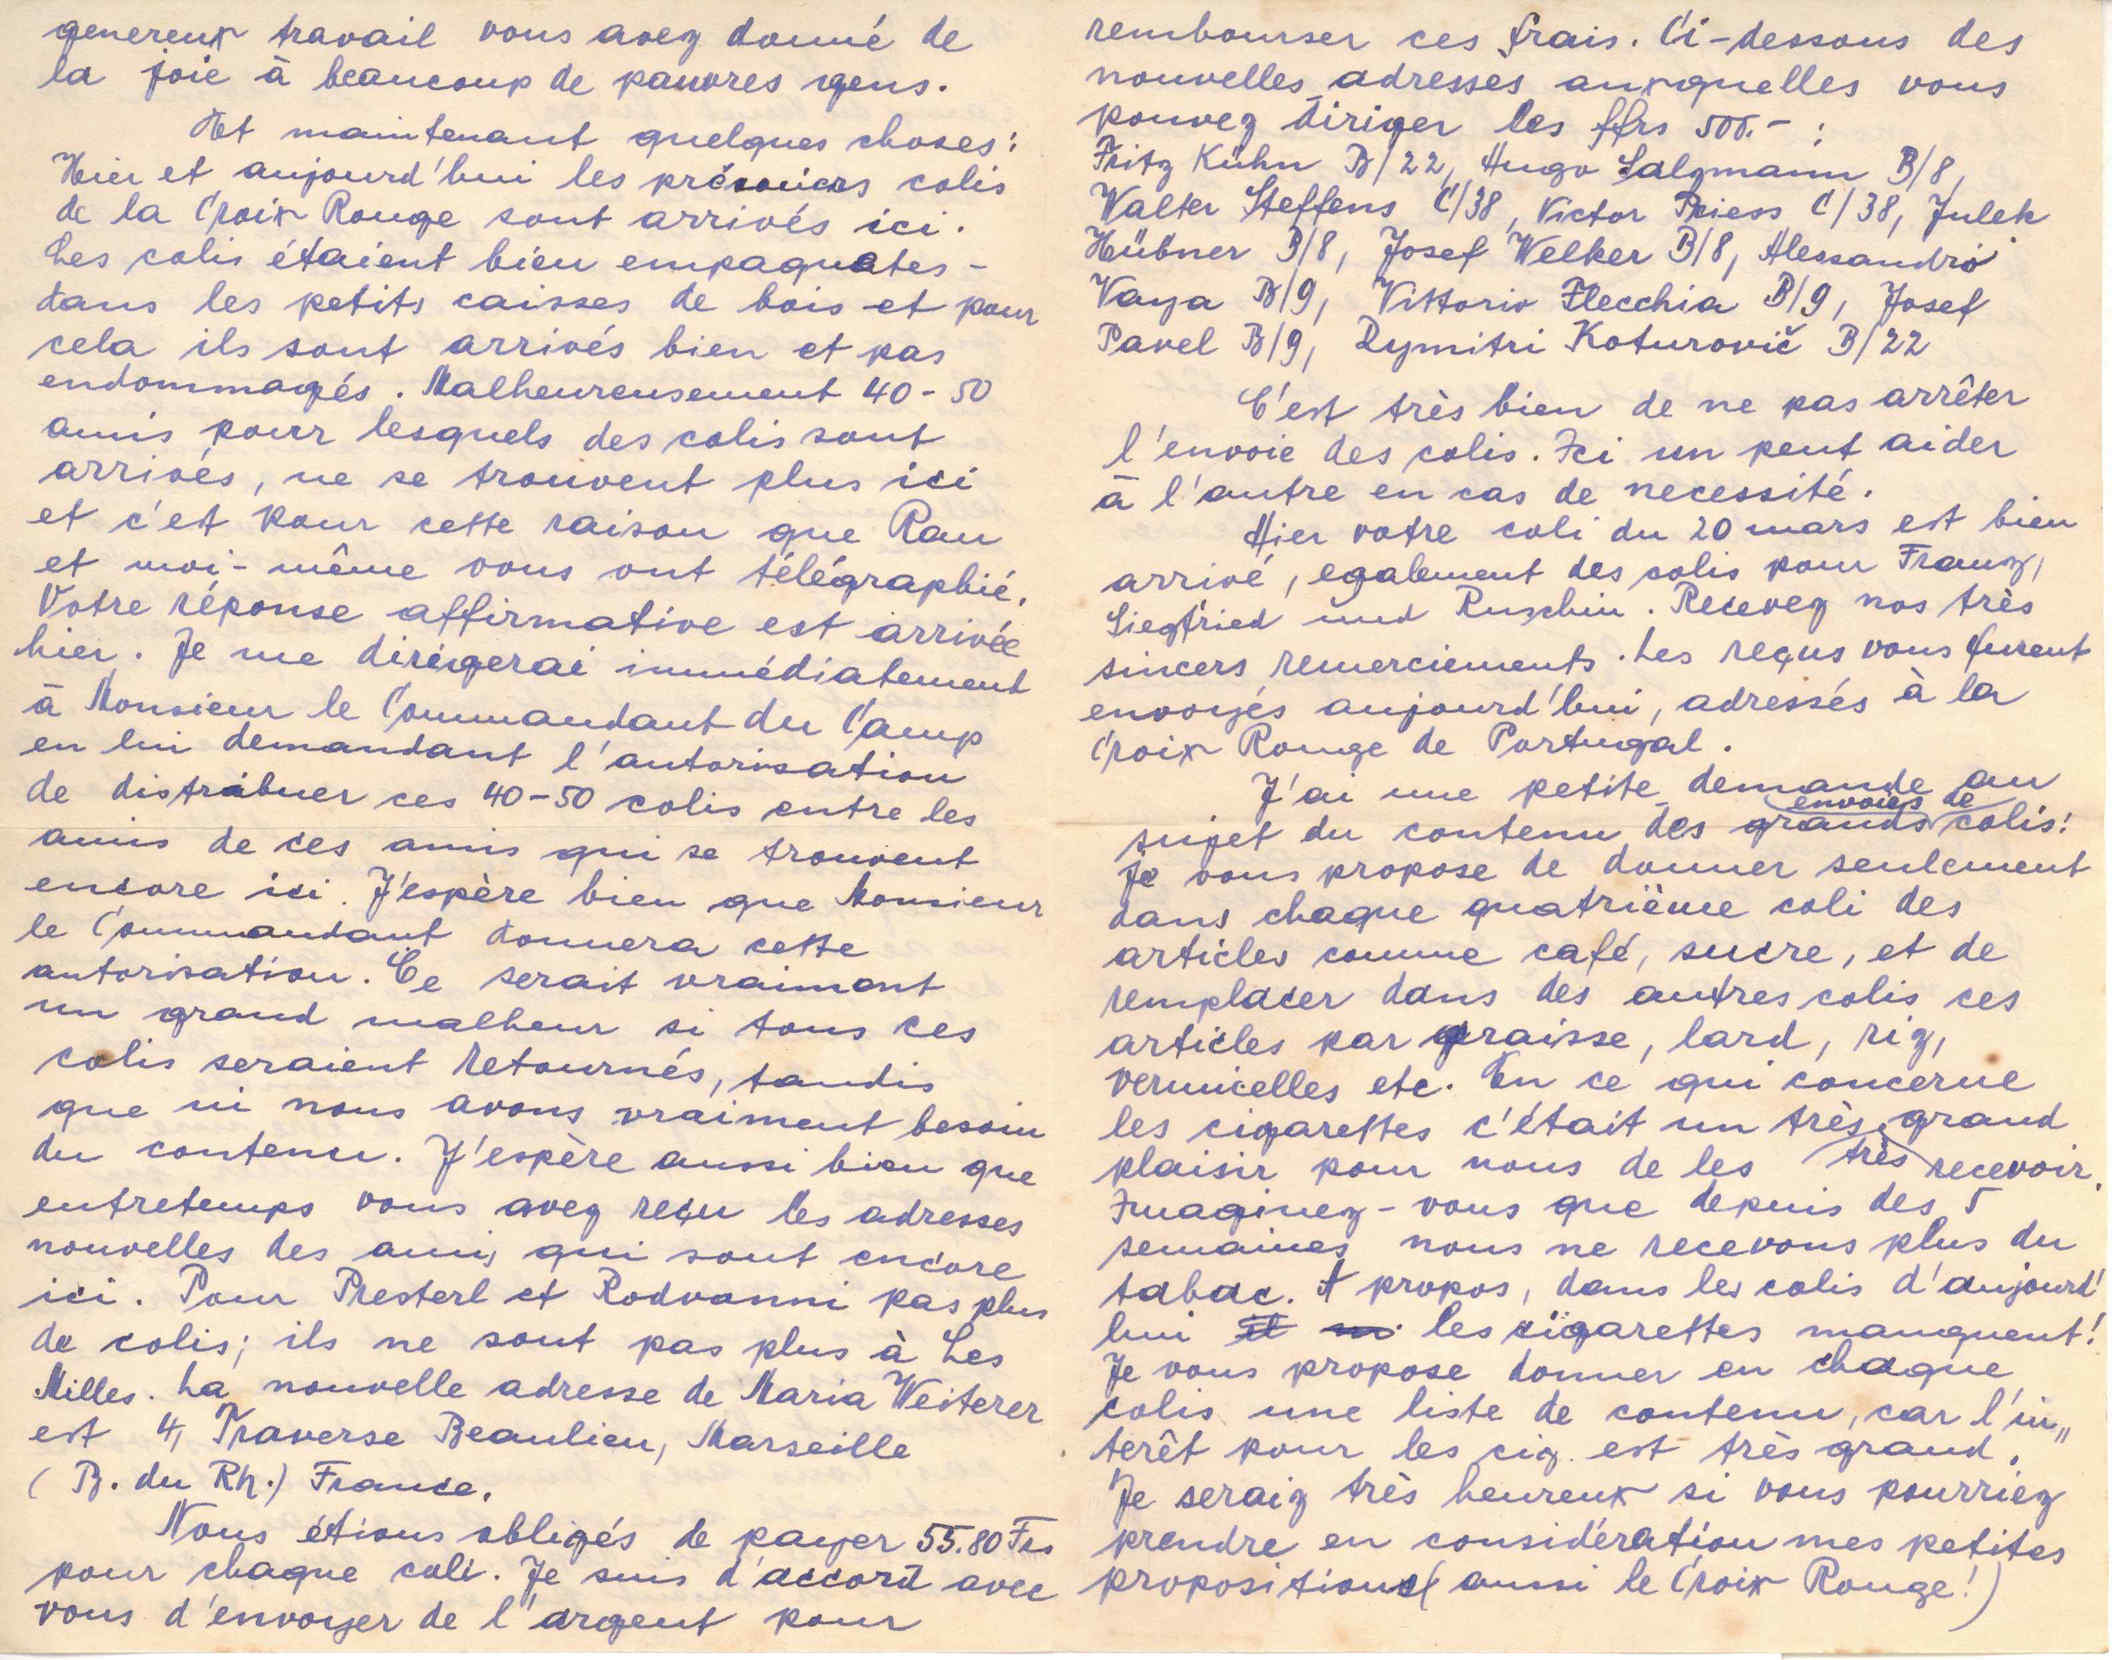 genereux travail vous avez donné de
la joie à beaucoup de pauvres gens.
Et maintenant quelques choses:
Hier et aujourd'hui les premiers colis
de la Croix Rouge sont arrivés ici.
Les colis étaient bien empaquetes -
dans les petits caisses de bois et pour
cela ils sont arrivés bien et pas
endommagés. Malheureusement 40-50
amis pour lesquels des colis sont
arrivés, ne se trouvent plus ici
et c'est pour cette raison que Rau
et moi-même vous ont télégraphié.
Votre réponse affirmative est arrivée
hier. Je me dirigerai immédiatement
à Monsieur le Commandant du Camp
en lui demandant l'autorisation
de distribuer ces 40-50 colis entre les
amis de ces amis qui se trouvent
encore ici. J'espère bien que Monsieur
le Commandant donnera cette
autorisation. Ce serait vraiment
un grand malheur si tous ces
colis seraient retournés, tandis
que ici nous avons vraiment besoin
du contenu. J'espère aussi bien que
entretemps vous avez reçu les adresses
nouvelles des amis qui sont encore
ici. Pour Presterl et Rodvanni pas plus
de colis; ils ne sont pas plus à Les
Milles. La nouvelle adresse de Maria Weiterer
est 4, Traverse Beaulieu, Marseille
(B. du Rh.) France.
Nous étions obligés de payer 55.80 Frs
pour chaque coli. Je suis d'accord avec
vous d'envoyer de l'argent pour
rembourser ces frais. Ci-dessous des
nouvelles adresses auxquelles vous
pouvez diriger les ffrs 500.- :
Fritz Kühn B/22, Hugo Salzmann B/8,
Walter Steffens C/38, Victor Priess C/38, Julek
Hübner B/8, Josef Welker B/8, Alessandro
Vaya B/9, Vittorio Flecchia B/9, Josef
Pavel B/9, Dymitri Koturovič B/22
C'est très bien de ne pas arrêter
l'envoie des colis. Ici un peut aider
à l'autre en cas de necessité.
Hier votre coli du 20 mars est bien
arrivé, egalement des colis pour Franz,
Siegfried und Ruschin. Recevez nos très
sincers remerciements. Les reçus vous furent
envoyés aujourd'hui, adressés à la
Croix Rouge de Portugal.
J'ai une petite demande au
sujet du contenu des grands envoies de colis:
Je vous propose de donner seulement
dans chaque quatrième coli des
articles comme café, sucre, et de
remplacer dans des autres colis ces
articles par graisse, lard, riz,
vermicelles etc. En ce qui concerne
les cigarettes c'était un très, très grand
plaisir pour nous de les recevoir.
Imaginez-vous que depuis des 5
semaines nous ne recevons plus du
tabac. A propos, dans les colis d'aujourd'
hui les cigarettes manquent!
Je vous propose donner en chaque
colis une liste de contenu, car l'in„
terêt pour les cig. est très grand.
Je seraiz très heureux si vous pourriez
prendre en considération mes petites
propositions (aussi le Croix Rouge!)